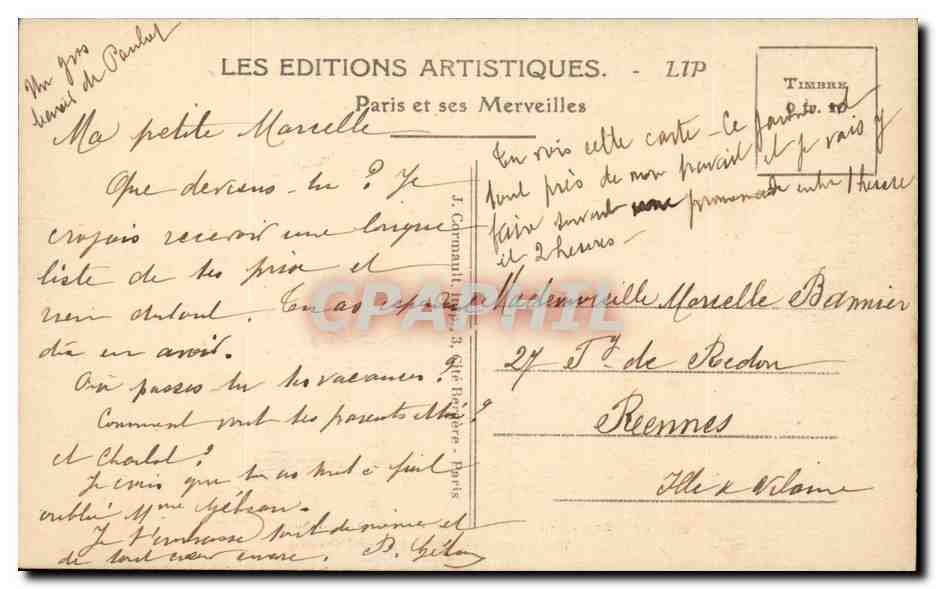 Un gros
baiser de Paulot
LES EDITIONS ARTISTIQUES. - LIP
Paris et ses Merveilles
TIMBRE
Ma petite Marcelle
Que deviens-tu ? Je
croyais recevoir une longue
liste de tes prix et
rien du tout. Tu as
dû en avoir.
Où passes tu tes vacances ?
Comment vont tes parents
et Charlot ?
Je crois que tu as tout à fait
oublié Mme
Je t'embrasse tout de même et
de tout cœur encore. P.
J. Cormault, Imp., 3, Cité Bergère - Paris
Tu vois cette carte - Ce jardin
tout près de mon travail et je vais y
faire souvent une promenade entre 1 heure
et 2 heures -
Mademoiselle Marcelle
27 Fg de Redon
Rennes
Ille & Vilaine
CPAPHIL